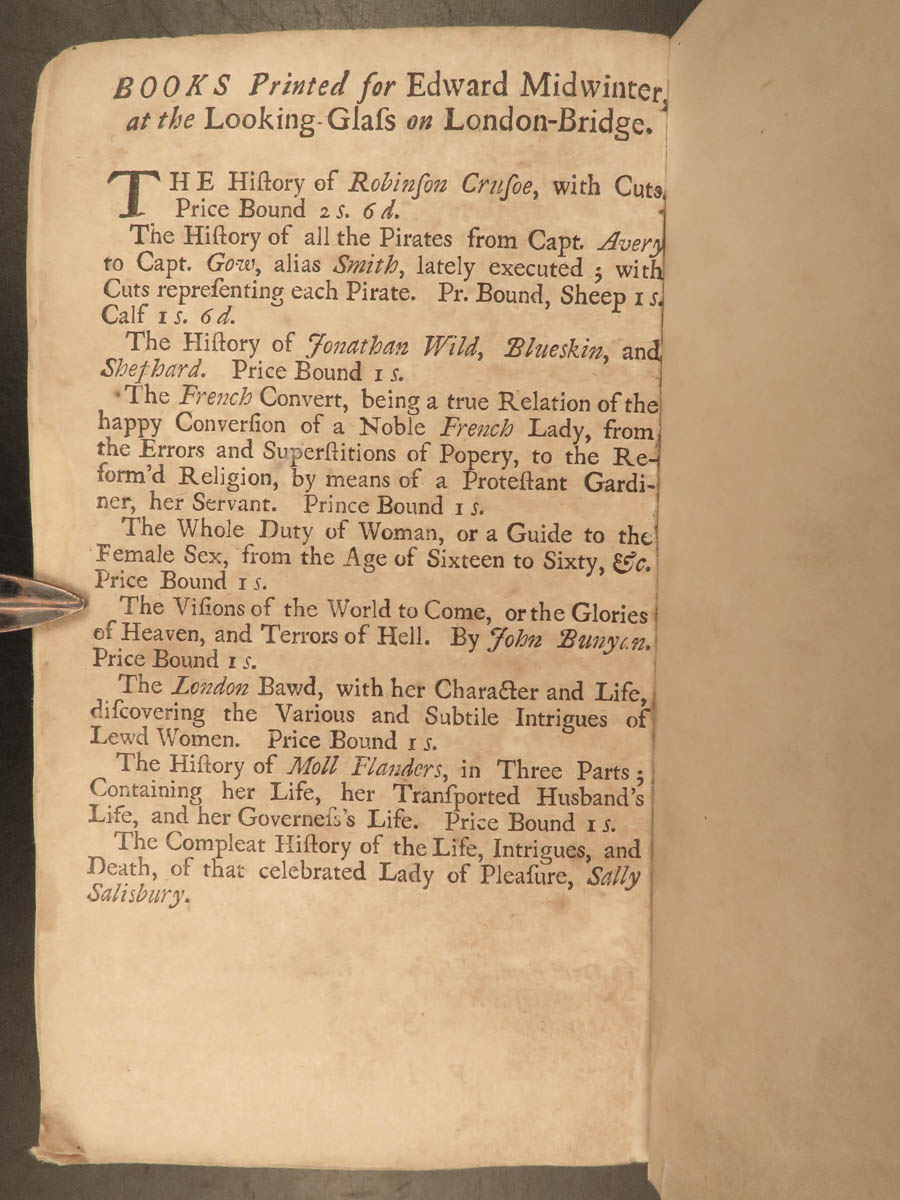 BOOKS Printed for Edward Midwinter,
at the Looking-Glaſs on London-Bridge.
THE Hiſtory of Robinſon Cruſoe, with Cuts.
Price Bound 2 s. 6 d.
The Hiſtory of all the Pirates from Capt. Avery
to Capt. Gow, alias Smith, lately executed ; with
Cuts repreſenting each Pirate. Pr. Bound, Sheep 1 s.
Calf 1 s. 6 d.
The Hiſtory of Jonathan Wild, Blueskin, and
Shephard. Price Bound 1 s.
The French Convert, being a true Relation of the
happy Converſion of a Noble French Lady, from
the Errors and Superſtitions of Popery, to the Re-
form'd Religion, by means of a Proteſtant Gardi-
ner, her Servant. Prince Bound 1 s.
The Whole Duty of Woman, or a Guide to the
Female Sex, from the Age of Sixteen to Sixty, &c.
Price Bound 1 s.
The Viſions of the World to Come, or the Glories
of Heaven, and Terrors of Hell. By John Bunyan.
Price Bound 1 s.
The London Bawd, with her Character and Life,
diſcovering the Various and Subtile Intrigues of
Lewd Women. Price Bound 1 s.
The Hiſtory of Moll Flanders, in Three Parts ;
Containing her Life, her Tranſported Husband's
Life, and her Governeſs's Life. Price Bound 1 s.
The Compleat Hiſtory of the Life, Intrigues, and
Death, of that celebrated Lady of Pleaſure, Sally
Salisbury.